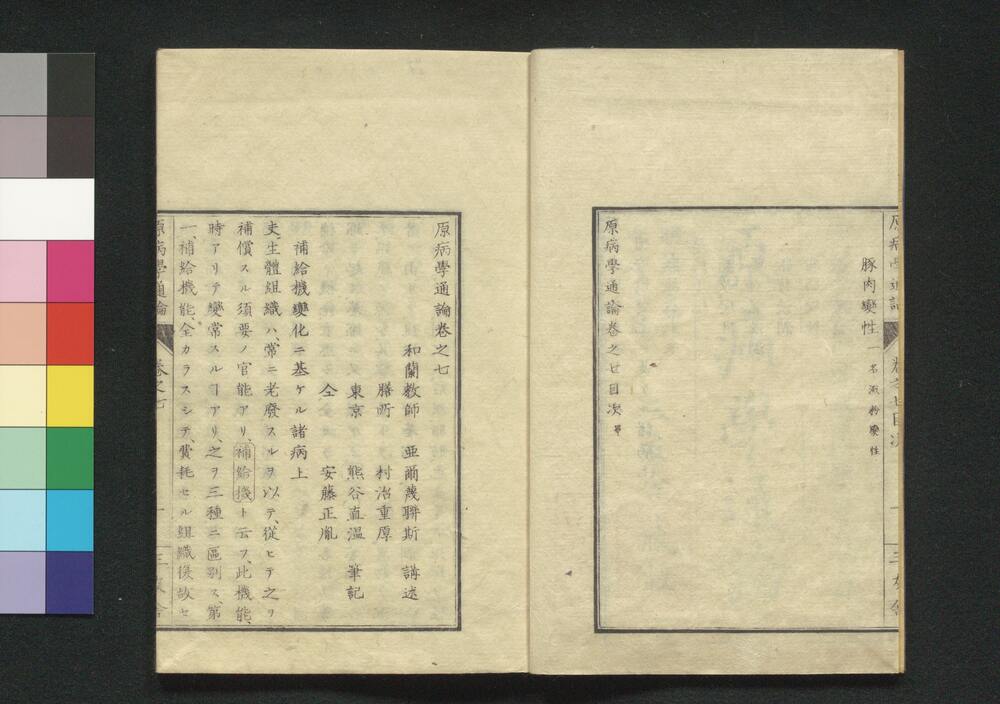 豚肉變性 一名澱粉變性
原病學通論卷之七目次畢
原病學通論卷之七
和蘭教師 亞爾蔑聯斯 講述
膳所 村治重厚
東京 熊谷直温 筆記
仝 安藤正胤
補給機變化ニ基ケル諸病上
夫生體組織ハ、常ニ老廢スルヲ以テ、從ヒテ之ヲ
補償スル須要ノ官能アリ、補給機ト云フ、此機能、
時アリテ變常スルヿアリ、之ヲ三種ニ區別ス、第
一、補給機能、全カラスシテ、費耗セル組織復故セ
原病學通論 卷之七 一 三友舍